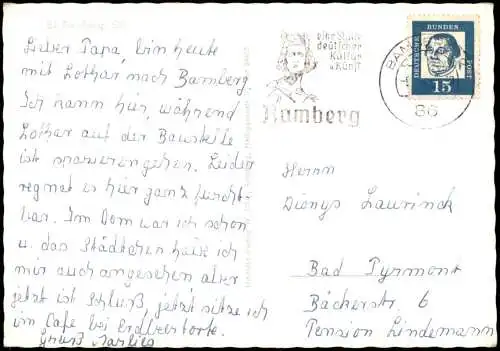 Lieber Papa, bin heute
mit Lothar nach Bamberg.
Ich kann hier, während
Lothar auf der Baustelle
ist spazierengehen. Leider
regnet es hier ganz furcht-
bar. Im Dom war ich schon
u. das Städtchen habe ich
mir auch angesehen aber
jetzt ist Schluß, jetzt sitze ich
im Cafe bei Erdbeertorte.
Gruß Marlies
eine Stadt
deutscher
Kultur
u. Kunst
Bamberg
BAMBERG
86
DEUTSCHE BUNDESPOST
15
Herrn
Dionys Laurinck
Bad Pyrmont
Bäckerstr. 6
Pension Lindemann